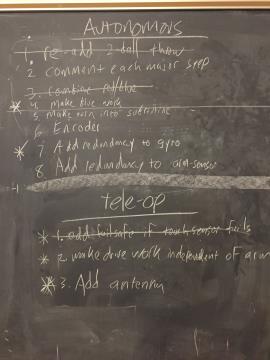 Autonomous
1. re-add 2-ball throw
2 comment each major step
3. combine red/blue
* 4. make blue work
5 make turn into subroutine
6 Encoder
* 7 Add redundancy to gyro
8 Add redundancy to arm sensor
tele-op
* 1. add failsafe if touch sensor fails
* 2. make drive work independent of arm
* 3. Add antenna